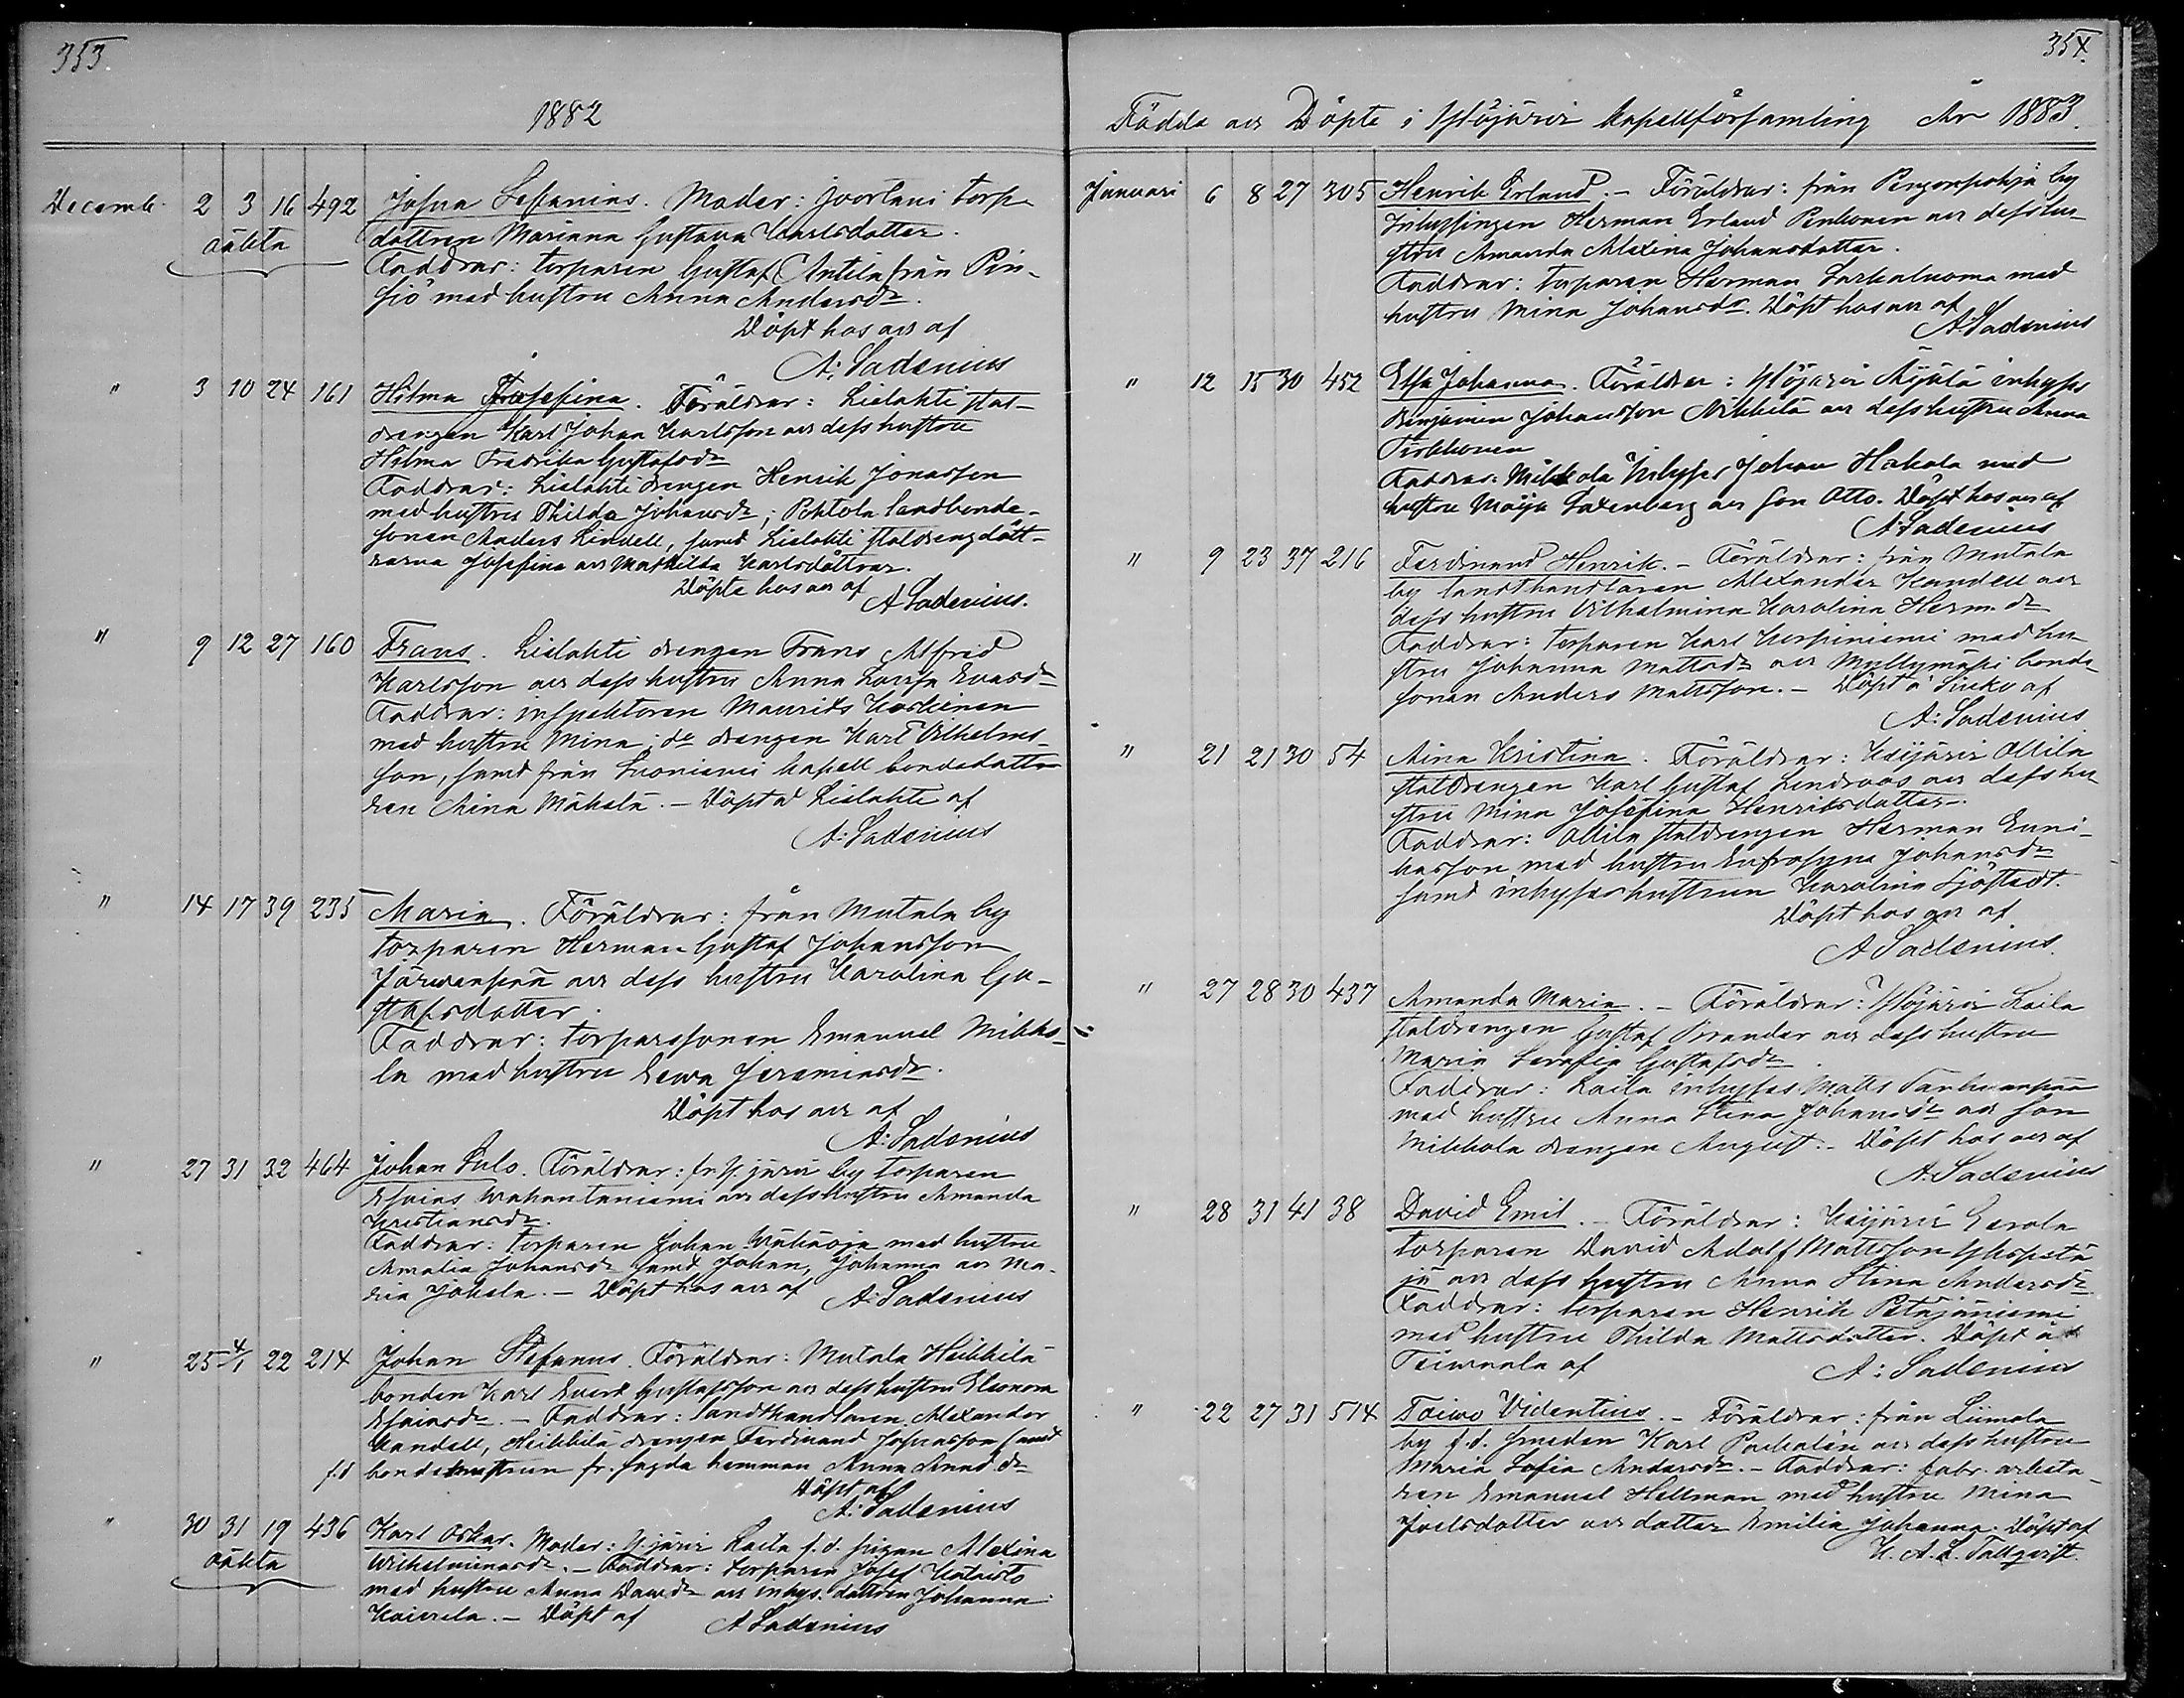 353.
1882
Decemb. 2 3 16 492 Johan Stefanus. Moder: Joortani torp-
oäkta dottren Mariana Gustava Karlsdotter.
Faddrar: torparen Gustaf Antila från Pin-
siö med hustru Anna Andersdr.
Döpt hos oss af
A: Sadenius
" 3 10 24 161 Hilma Josefina. Föräldrar: Lielahti stal-
drengen Karl Johan Karlsson och dess hustru
Hilma Fredrika Gustafsdr
Faddrar: Lielahti drengen Henrik Jonasson
med hustru Thilda Johansdr; Pohtola landbonde-
sonen Anders Lindell, samt Lielahti staldrengdött-
rarna Josefina och Mathilda Karlsdöttrar.
Döpte hos oss af A Sadenius.
" 9 12 27 160 Frans. Lielahti drengen Frans Alfred
Karlsson och dess hustru Anna Lovisa Evasdr
Faddrar: inspektoren Maurits Koskinen
med hustru Mina; do drengen Karl Vilhelms-
son, samt från Suoniemi kapell bondedott-
ren Mina Mäkelä. - Döpt å Lielahti af
A: Sadenius
" 14 17 39 235 Maria. Föräldrar: från Mutala by
torparen Herman Gustaf Johansson
Järvenpää och dess hustru Karolina Gu-
stafsdotter.
Faddrar: torparsonen Emanuel Mikko-
la med hustru Eeva Jeremiasdr.
Döpt hos oss af
A: Sadenius
" 27 31 32 464 Johan Sulo. Föräldrar: fr. Yjärvi by torparen
Esaias Wahantaniemi och dess hustru Amanda
Kristiansdr.
Faddrar: torparen Johan Wähäoja med hustru
Amalia Johansdr samt Johan, Johanna och Ma-
ria Jokela. - Döpt hos oss af A: Sadenius
" 25 4/1 22 214 Johan Stefanus. Föräldrar: Mutala Heikkilä
bonden Karl Evert Gustafsson och dess hustru Eleonora
Esaiasdr. - Faddrar: landthandlaren Alexander
Kandell, Heikkilä drengen Ferdinand Johansson samt
f.d bondehustrun fr. sagda hemman Anna And.dr
Döpt af
A: Sadenius
" 30 31 19 436 Karl Oskar. Moder: Yjärvi Laila f.d. pigan Alexina
oäkta Wilhelminasdr. - Faddrar: torparen Josef Kataisto
med hustru Anna Davidsdr och inhys. dottren Johanna
Koivula. - Döpt af A Sadenius
354.
Födda och Döpte i Ylöjärvi Kapellförsamling År 1883.
Januari 6 8 27 305 Henrik Erland. - Föräldrar: från Pengonpohja by
Inhysingen Herman Erland Penkonen och dess hu-
stru Amanda Alexina Johansdotter.
Faddrar: torparen Herman Sarkaluoma med
hustru Mina Johansdr. Döpt hos oss af
A: Sadenius
" 12 15 30 452 Elsa Johanna. Föräldrar: Ylöjärvi Äijälä inhyses
Benjamin Johansson Mikkilä och dess hustru Anna
Pirkkonen
Faddrar: Mikkola Inhyses Johan Hakala med
hustru Maija Saxenberg och son Otto. Döpt hos oss af
A: Sadenius
" 9 23 37 216 Ferdinand Henrik. - Föräldrar: från Mutala
by landthandlaren Alexander Kandell och
dess hustru Vilhelmina Karolina Herm.dr
Faddrar: torparen Karl Korpiniemi med hu-
stru Johanna Mattsdr och Myllymäki bonde-
sonen Anders Mattsson. - Döpt å Siuko af
A: Sadenius
" 21 21 30 54 Mina Kristina. Föräldrar: Keijärvi Ollila
staldrengen Karl Gustaf Lindroos och dess hu-
stru Mina Josefina Henriksdotter.
Faddrar: Ollila staldrengen Herman Enni-
kasson med hustru Eufrosyne Johansdr
samt inhyseshustrun Karolina Sjöstedt.
Döpt hos oss af
A Sadenius.
" 27 28 30 437 Amanda Maria. - Föräldrar: Ylöjärvi Laila
staldrengen Gustaf Brander och dess hustru
Maria Serafia Gustafsdr.
Faddrar: Laila inhyses Matts Tanhuanpää
med hustru Anna Stina Johansdr och son
Mikkola drengen August. - Döpt hos oss af
A: Sadenius
" 28 31 41 38 David Emil. - Föräldrar: Keijärvi Eerola
torparen David Adolf Mattsson Yhspetä-
jä och dess hustru Anna Stina Andersdr
Faddrar: torparen Henrik Petäjäniemi
med hustru Thilda Mattsdotter. Döpt å
Teivaala af A: Sadenius
" 22 27 31 514 Toiwo Videntius. - Föräldrar: från Liimola
by f.d. smeden Karl Packalén och dess hustru
Maria Sofia Andersdr. - Faddrar: fabr. arbeta-
ren Emanuel Hellman med hustru Mina
Joelsdotter och dotter Emilia Johanna. Döpt af
K. A. L. Tallqvist.